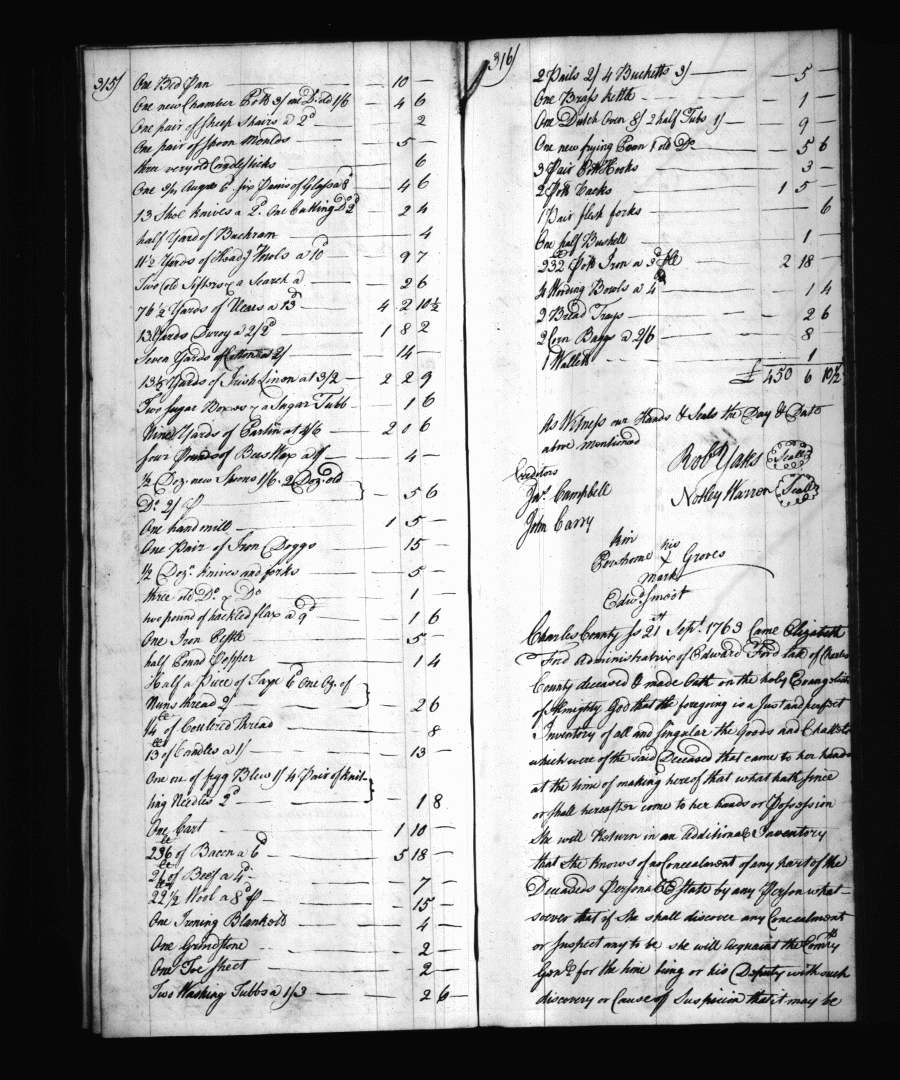 315/
One Bed Pan — 10 —
One new Chamber Pott 3/ one D: old 1/6 — 4 6
One pair of Sheep Shairs a 2d — 2
One pair of Spoon Moulds — 5 —
three very old Candlesticks — 6
One 3/4 Auger 6d six Pains of Glass a 8d — 4 6
13 Shoe Knives a 2d. One Cutting Do 2d — 2 4
half Yard of Buckram — 4
11½ Yards of Shead Wools a 10d — 9 7
Two old Sifters & a Search a — 2 6
76½ Yards of a 13d — 4 2 10½
13 Yards Duroy a 2/2d — 1 8 2
Seven Yards of Cotton a 2/ — 14 —
13½ Yards of Irish Linon at 3/2 — 2 2 9
Two Sugar Boxes & a Sugar Tubb — 1 6
Nine Yards of at 4/6 — 2 0 6
four Pounds of Bees Wax a 1/ — 4 —
½ Doz. new Spoons 1/6. 2 Doz. old
Do. 2/ P — 5 6
One hand mill — 1 5 —
One Pair of Iron Doggs — 15 —
½ Dozn. knives and forks — 5 —
three old Do. & Do — 1 —
two pound of hackled flax a 9d — 1 6
One Iron Pestle — 5 —
half Pound Pepper — 1 4
Half a Piece of Tape 6d One Oz. of
Nuns thread 2/ — 2 6
¼ lb of Coulered Thread — 8
13 lb of Candles a 1/ — 13 —
One oz. of figg Blew 1/ 4 Pair of Knit-
ting Needles 2d — 1 8
One Cart — 1 10 —
236 lb of Bacon a 6d — 5 18 —
21 lb of Beef a 4d — 7 —
22½ lb Wool a 8d P — 15 —
One Ironing Blankett — 4 —
One Grindstone — 2 —
One Toe Sheet — 2 —
Two Washing Tubbs a 1/3 — 2 6
316/
2 Pails 2/ 4 Bucketts 3/ — 5 —
One Brass Kettle — 1 —
One Dutch Oven 8/ 2 half Tubs 1/ — 9 —
One new frying Pann 1 old Do — 5 6
3 Pair Pott Hooks — 3 —
2 Pott Racks — 1 5 —
1 Pair flesh forks — 6
One half Bushell — 1 —
232 lb Pott Iron a 3d P lb — 2 18 —
4 Bowls a 4d — 1 4
2 Bread Trays — 2 6
2 Corn Baggs a 2/6 — 8 —
1 Wallett — 1
£ 450 6 10½
As Witness our Hands & Seals the Day & Date
above mentioned
Robt Yates Seal
Creditors
Jas. Campbell
Notley Warren Seal
John Carry
kin
his
Groves
mark
Edwd. Smoot
Charles County Ss 21st Sept. 1763 Came Elizabeth
Ford Administratrix of Edward Ford late of Charles
County deceased & made Oath on the holy Evangelists
of Almighty God that the foregoing is a Just and perfect
Inventory of all and singular the Goods and Chattels
which were of the said Deceased that came to her hands
at the time of making hereof that what hath since
or shall hereafter come to her hands or Possession
She will Return in an Additional Inventory
that She knows of no Concealment of any part of the
Deceaseds Personal Estate by any Person what-
soever that if She shall discover any Concealment
or Suspect any to be she will acquaint the Comry
Genl. for the time being or his Deputy with such
discovery or Cause of Suspicion that it may be